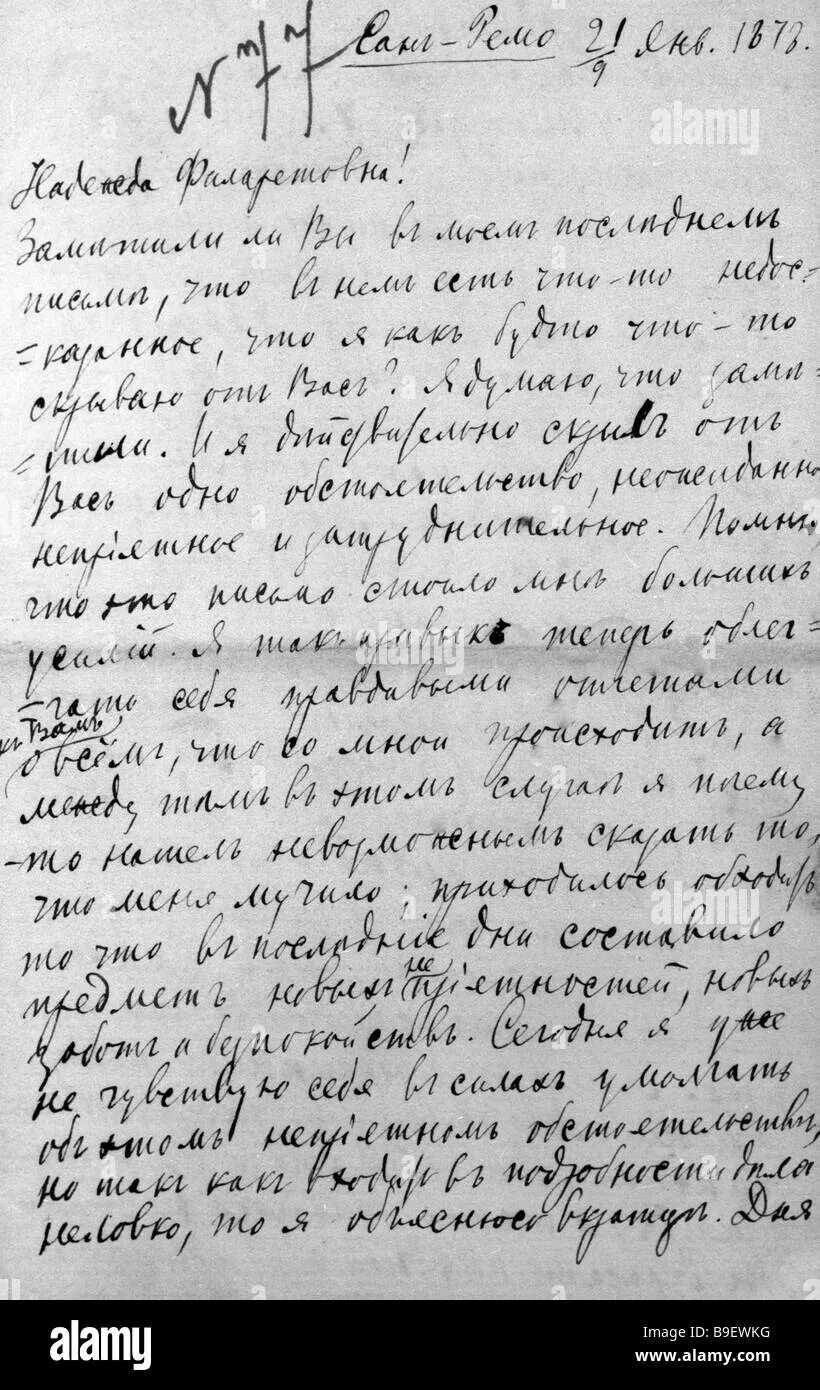 Санъ-Ремо 21/9 Янв. 1878.
Надежда Филаретовна!
Замѣтили ли Вы въ моемъ послѣднемъ
письмѣ, что въ немъ есть что-то недос=
=казанное, что я какъ будто что-то
скрываю отъ Васъ? Я думаю, что замѣ=
=тили. И я дѣйствительно скрылъ отъ
Васъ одно обстоятельство, неожиданно
непріятное и затруднительное. Помню,
что это письмо стоило мнѣ большихъ
усилій. Я такъ привыкъ теперь облег=
=чать себя правдивыми отчетами
Вамъ
о всёмъ, что со мной происходитъ, а
между тѣмъ въ этомъ случаѣ я почему
-то нашелъ невозможнымъ сказать то,
что меня мучило; приходилось обходить
то что въ послѣдніе дни составило
предметъ новыхъ непріятностей, новыхъ
заботъ и безпокойствъ. Сегодня я уже
не чувствую себя въ силахъ умолчать
объ этомъ непріятномъ обстоятельствѣ,
но такъ какъ входить въ подробности дѣла
неловко, то я объяснюсь вкратцѣ. Для
alamy
alamy
alamy
alamy
alamy
Image ID: B9EWKG
www.alamy.com